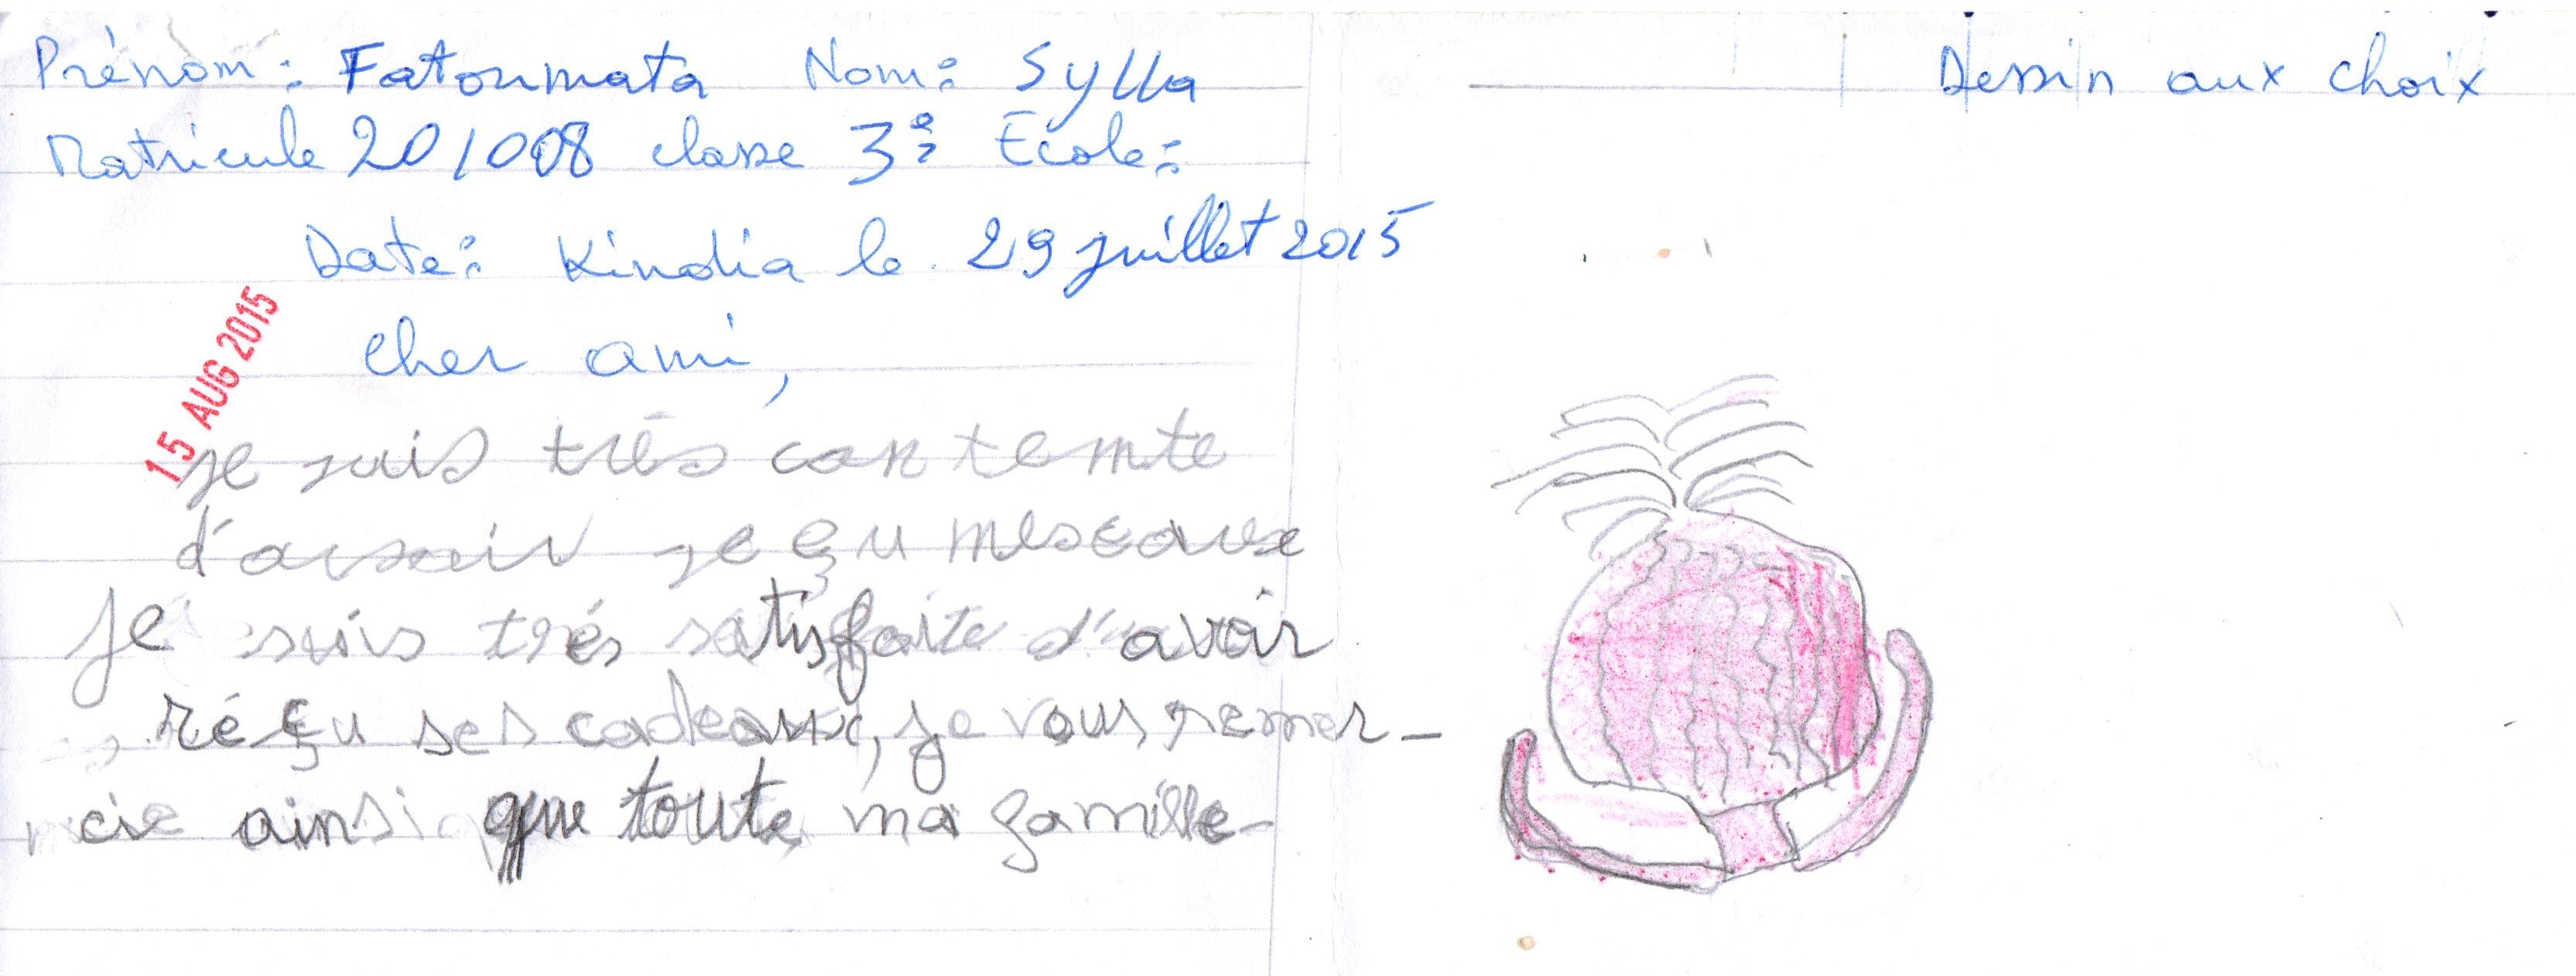 Prénom: Fatoumata Nom: Sylla
Dessin aux choix
Matricule 20/008 classe 3e: Ecole:
Date: Kindia le 29 juillet 2015
15 AUG 2015
cher ami,
je suis très contemte
d'avoir
je suis très satisfaite d'avoir
réçu ses cadeaux, je vous remer-
cie ainsi que toute ma famille-